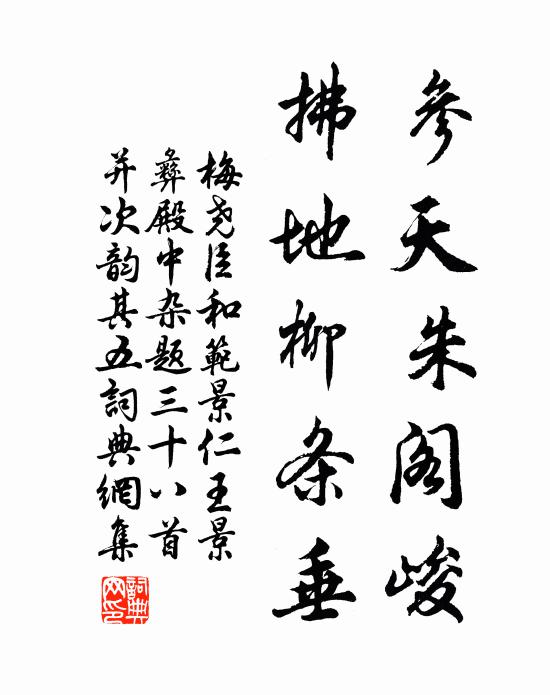 参天朱阁峻
拂地柳条垂
梅尧臣和範景仁王景
彝殿中杂题三十八首
并次韵其五詞典網集
詞典网印